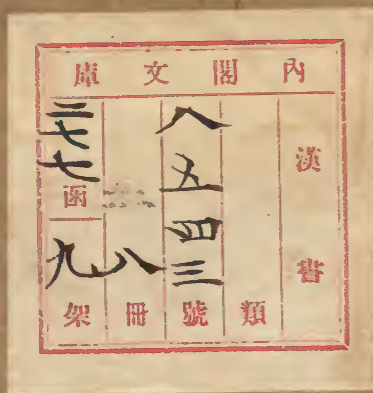 內閣文庫
漢書
類
八五四三號
八冊
二七七函
九架